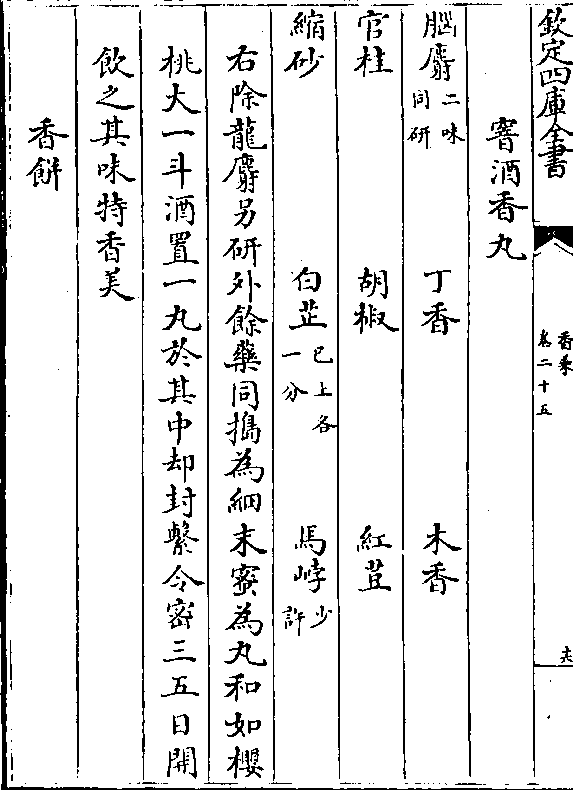 欽定四庫全書
香乘
卷二十五
十六
窨酒香丸
腦麝二味同研 丁香 木香
官桂 胡椒 紅荳
縮砂 白芷已上各一分 馬㟧少許
右除龍麝另研外餘藥同搗為細末蜜為丸和如櫻
桃大一斗酒置一丸於其中却封繫令密三五日開
飲之其味特香美
香餅